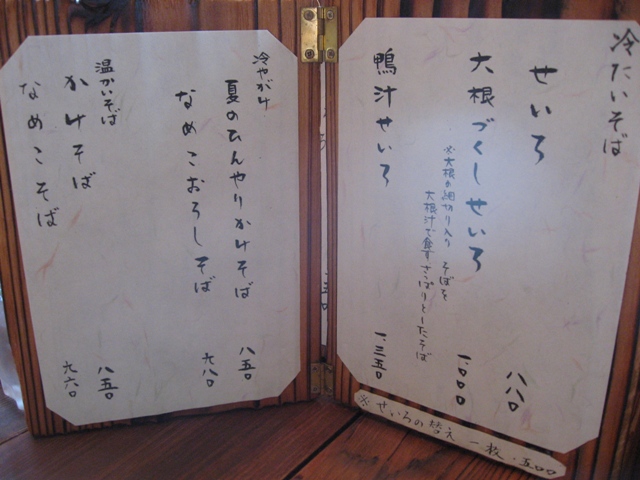 冷たいそば
せいろ 八八〇
大根づくしせいろ 一、〇〇〇
※大根の細切り入り そばを
大根汁で食すさっぱりとしたそば
鴨汁せいろ 一、三五〇
※せいろの替え 一枚 、五〇〇
冷やがけ
夏のひんやりかけそば 八五〇
なめこおろしそば 九八〇
温かいそば
かけそば 八五〇
なめこそば 九六〇